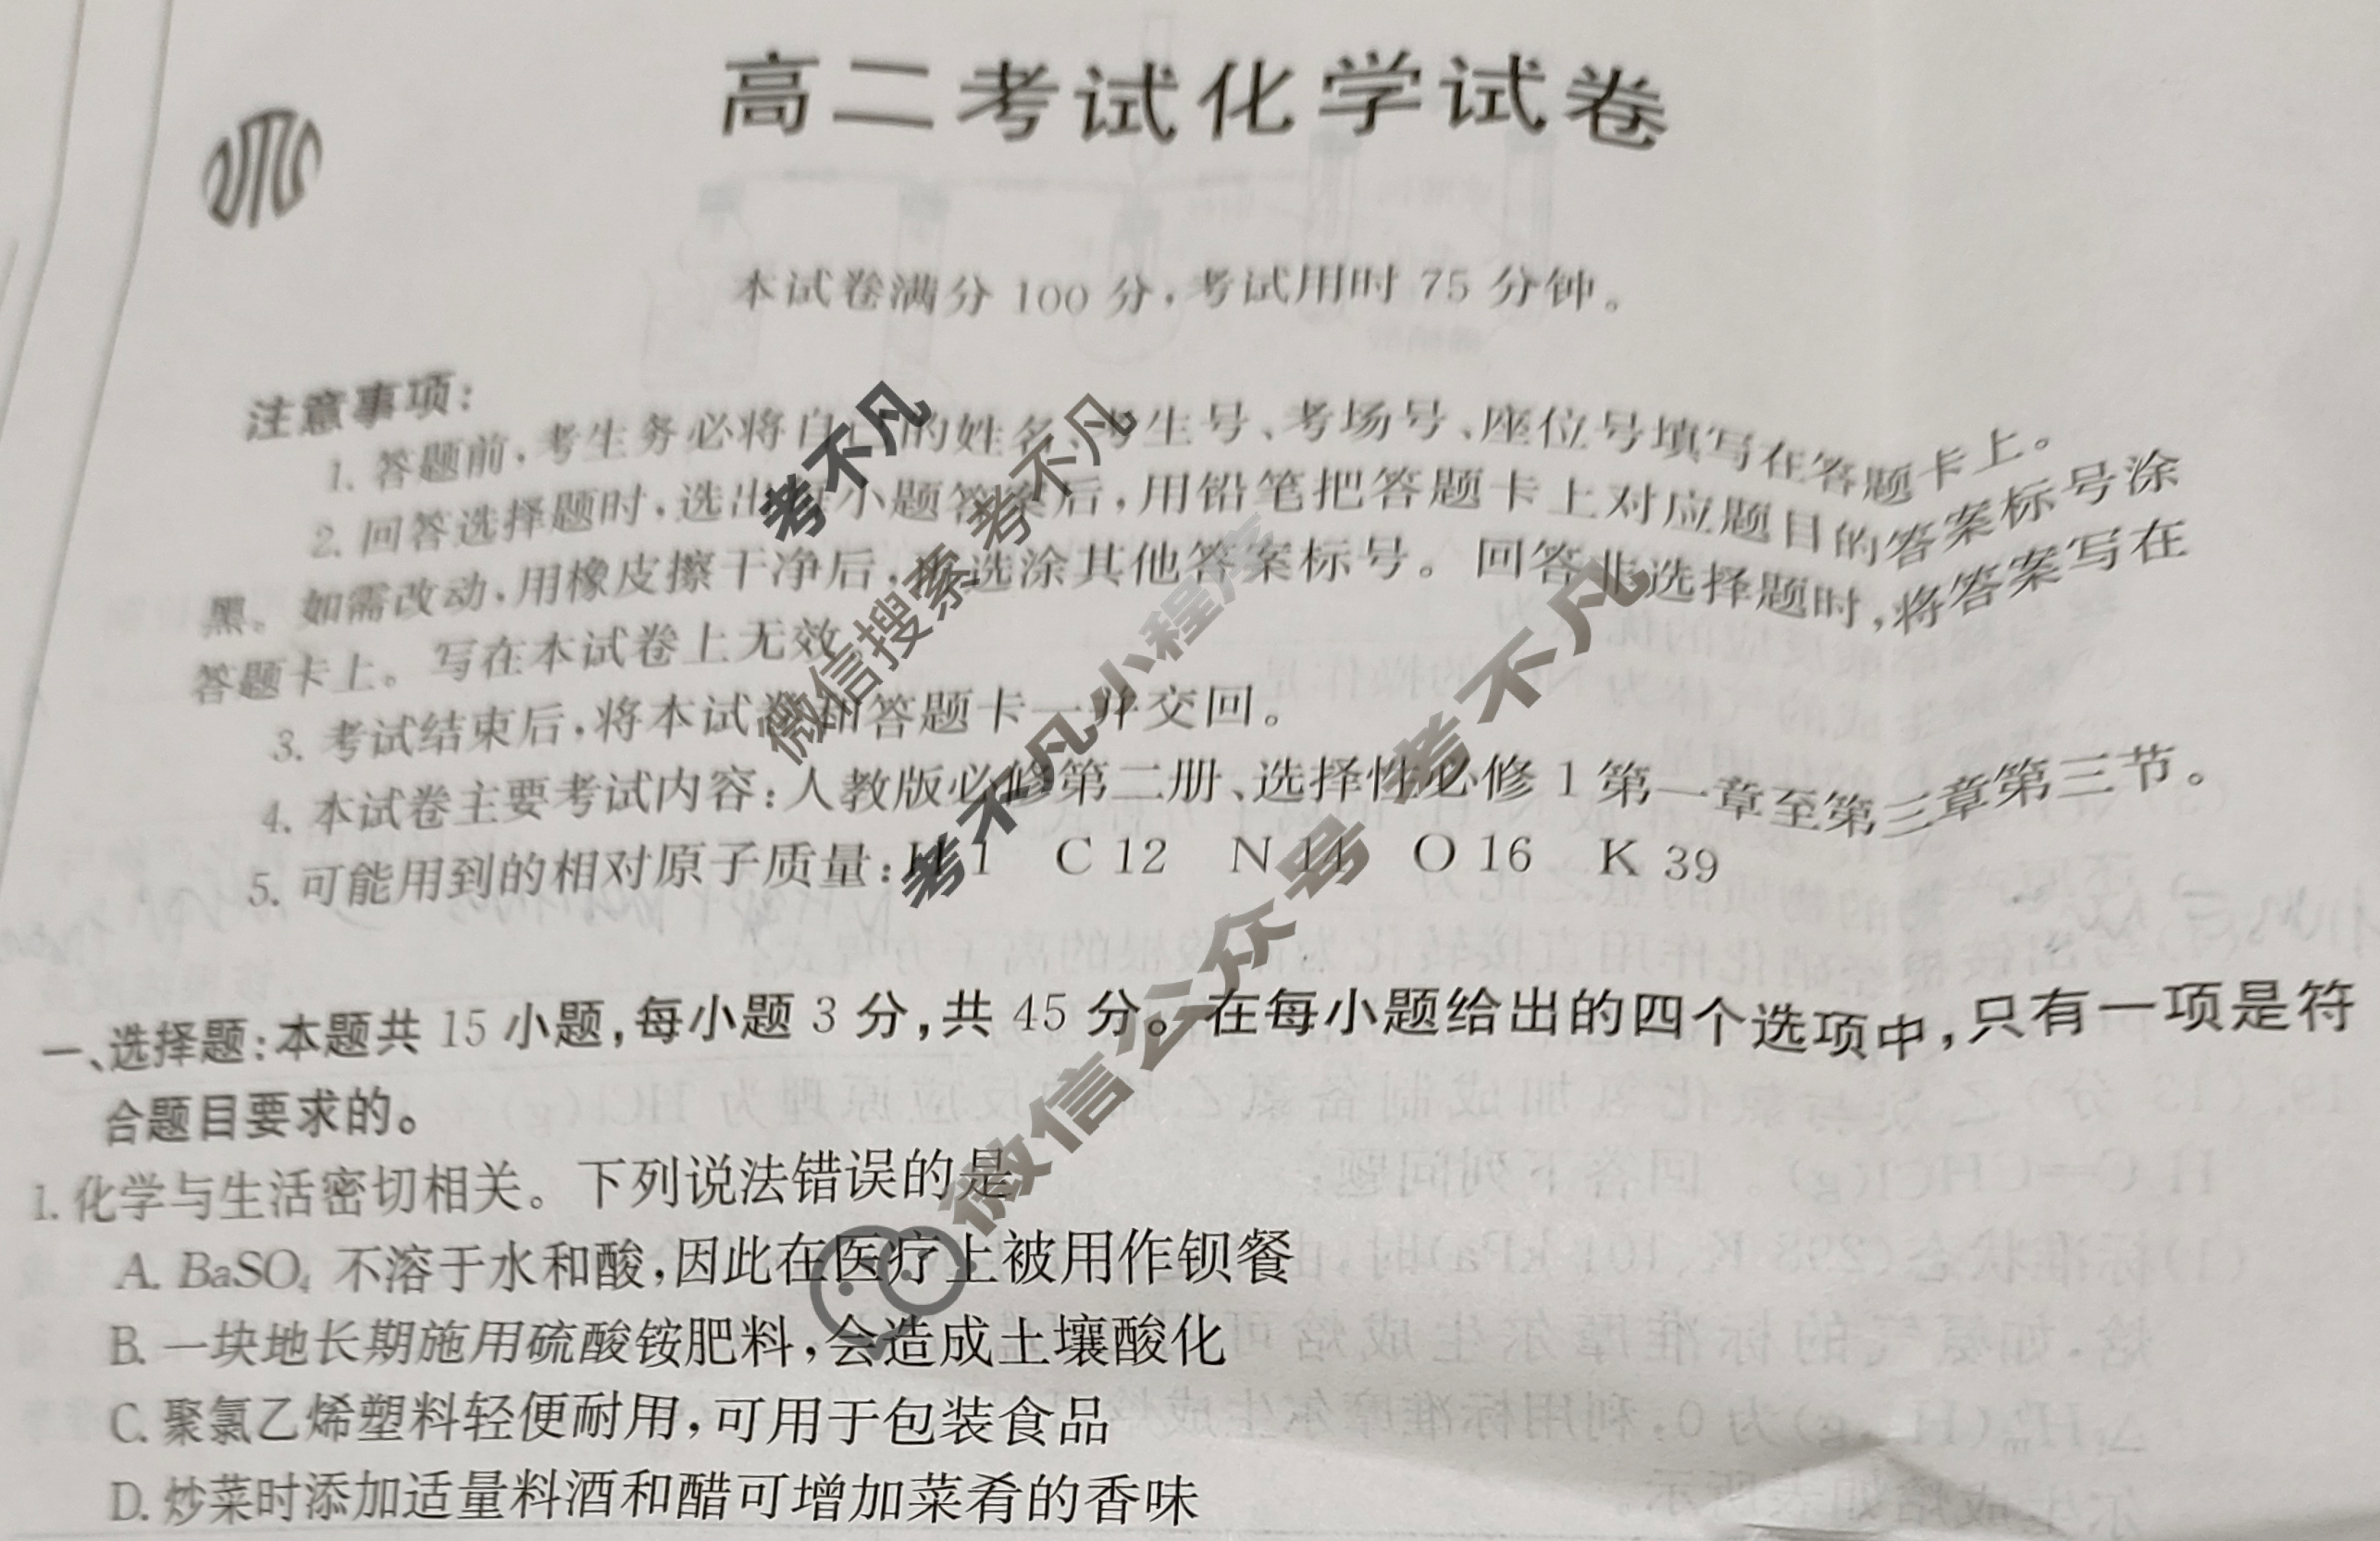 高二考试化学试卷
本试卷满分 100 分,考试用时 75 分钟。
注意事项:
1. 答题前,考生务必将自己的姓名、考生号、考场号、座位号填写在答题卡上。
2. 回答选择题时,选出每小题答案后,用铅笔把答题卡上对应题目的答案标号涂
黑。如需改动,用橡皮擦干净后,再选涂其他答案标号。回答非选择题时,将答案写在
答题卡上。写在本试卷上无效。
3. 考试结束后,将本试卷和答题卡一并交回。
4. 本试卷主要考试内容:人教版必修第二册、选择性必修 1 第一章至第三章第三节。
5. 可能用到的相对原子质量:H 1 C 12 N 14 O 16 K 39
一、选择题:本题共 15 小题,每小题 3 分,共 45 分。在每小题给出的四个选项中,只有一项是符
合题目要求的。
1. 化学与生活密切相关。下列说法错误的是
A. BaSO₄ 不溶于水和酸,因此在医疗上被用作钡餐
B. 一块地长期施用硫酸铵肥料,会造成土壤酸化
C. 聚氯乙烯塑料轻便耐用,可用于包装食品
D. 炒菜时添加适量料酒和醋可增加菜肴的香味
考不凡
微信搜索 考不凡
考不凡小程序
微信公众号 考不凡